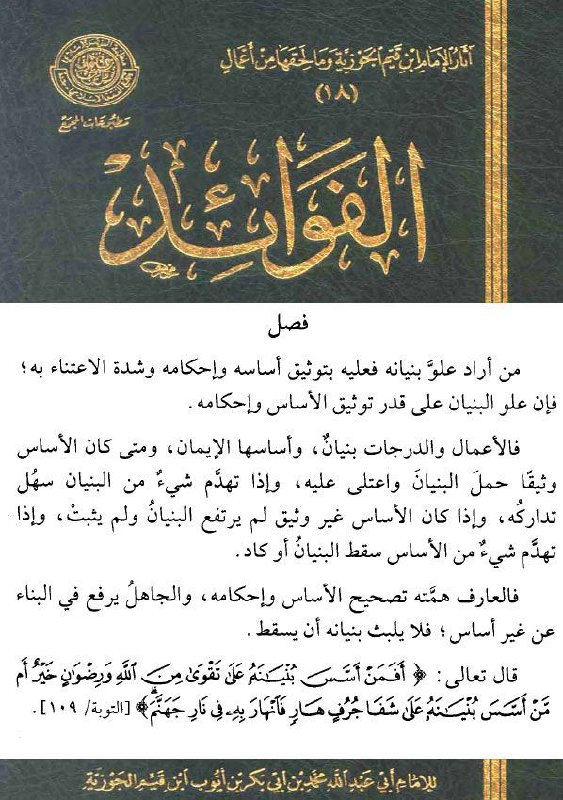 آثار الإمام ابن قيم الجوزية وما لحقها من أعمال
(١٨)
مطبوعات المجمع
الفوائد
فصل
من أراد علوَّ بنيانه فعليه بتوثيق أساسه وإحكامه وشدة الاعتناء به؛
فإن علو البنيان على قدر توثيق الأساس وإحكامه.
فالأعمال والدرجات بنيانٌ، وأساسها الإيمان، ومتى كان الأساس
وثيقًا حملَ البنيانَ واعتلى عليه، وإذا تهدَّم شيءٌ من البنيان سهُل
تداركُه، وإذا كان الأساس غير وثيق لم يرتفع البنيانُ ولم يثبتْ، وإذا
تهدَّم شيءٌ من الأساس سقط البنيانُ أو كاد.
فالعارف همَّته تصحيح الأساس وإحكامه، والجاهلُ يرفع في البناء
عن غير أساس؛ فلا يلبث بنيانه أن يسقط.
قال تعالى: ﴿أَفَمَنْ أَسَّسَ بُنْيَـٰنَهُۥ عَلَىٰ تَقْوَىٰ مِنَ ٱللَّهِ وَرِضْوَٰنٍ خَيْرٌ أَم
مَّنْ أَسَّسَ بُنْيَـٰنَهُۥ عَلَىٰ شَفَا جُرُفٍ هَارٍ فَٱنْهَارَ بِهِۦ فِى نَارِ جَهَنَّمَۗ﴾ [التوبة/ ١٠٩].
للإمام أبي عبد الله محمد بن أبي بكر بن أيوب ابن قيم الجوزية